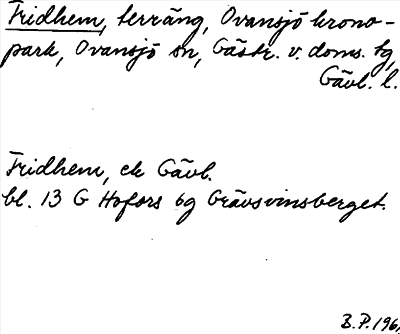 Fridhem, terräng, Ovansjö krono-
park, Ovansjö sn, Gästr. v. doms. tg,
Gävl. l.
Fridhem, ek Gävl.
bl. 13 G Hofors 6g Grävsvinsberget.
B.P. 196